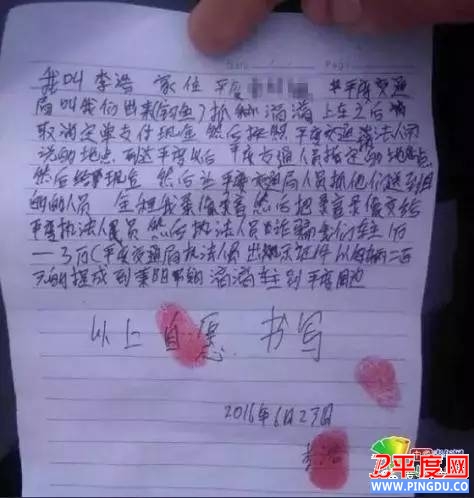 Date Page
我叫李浩 家住 平度 平度交通
局叫我们出来(钓鱼)抓 滴滴 上车之后
取消定单支付现金 然后按照平度交通 法人员
说的地点 到达平度以后 平度交通人员指定的地点
然后给现金 然后让平度交通局人员抓他们送到目
的的人员 全程我录像录音 然后把录音录像交给
平度执法人员 然后执法人员诈骗 车主 万
一3万(平度交通局执法人员 出 示证件 以每辆二百
元的提成 到莱阳 滴滴车主 到平度周边
以上自愿 书写
2016年6月23日
李浩
平度网
WWW.PINGDU.CC